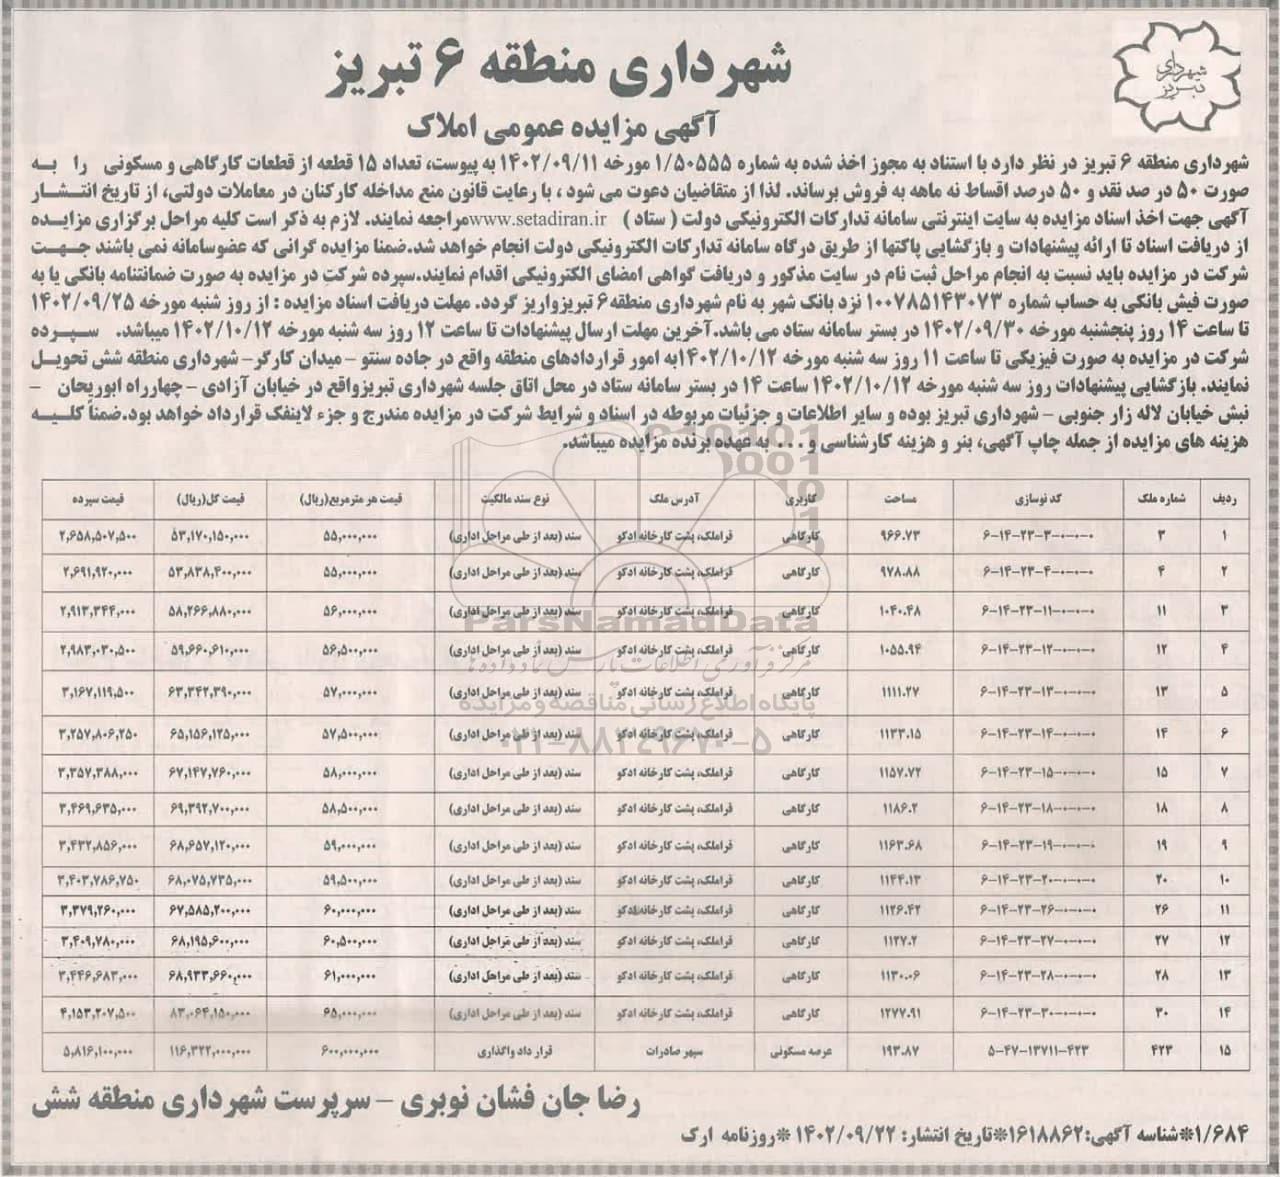 شهرداری تبریز
شهرداری منطقه ۶ تبریز
آگهی مزایده عمومی املاک
شهرداری منطقه ۶ تبریز در نظر دارد با استناد به مجوز اخذ شده به شماره ۱/۵۰۵۵۵ مورخه ۱۴۰۲/۰۹/۱۱ به پیوست، تعداد ۱۵ قطعه از قطعات کارگاهی و مسکونی را به
صورت ۵۰ در صد نقد و ۵۰ درصد اقساط نه ماهه به فروش برساند. لذا از متقاضیان دعوت می شود ، با رعایت قانون منع مداخله کارکنان در معاملات دولتی، از تاریخ انتشار
آگهی جهت اخذ اسناد مزایده به سایت اینترنتی سامانه تدارکات الکترونیکی دولت ( ستاد ) www.setadiran.ir مراجعه نمایند. لازم به ذکر است کلیه مراحل برگزاری مزایده
از دریافت اسناد تا ارائه پیشنهادات و بازگشایی پاکتها از طریق درگاه سامانه تدارکات الکترونیکی دولت انجام خواهد شد.ضمنا مزایده گرانی که عضوسامانه نمی باشند جهت
شرکت در مزایده باید نسبت به انجام مراحل ثبت نام در سایت مذکور و دریافت گواهی امضای الکترونیکی اقدام نمایند.سپرده شرکت در مزایده به صورت ضمانتنامه بانکی یا به
صورت فیش بانکی به حساب شماره ۱۰۰۷۸۵۱۴۳۰۷۳ نزد بانک شهر به نام شهرداری منطقه۶ تبریزواریز گردد. مهلت دریافت اسناد مزایده : از روز شنبه مورخه ۱۴۰۲/۰۹/۲۵
تا ساعت ۱۴ روز پنجشنبه مورخه ۱۴۰۲/۰۹/۳۰ در بستر سامانه ستاد می باشد.آخرین مهلت ارسال پیشنهادات تا ساعت ۱۲ روز سه شنبه مورخه ۱۴۰۲/۱۰/۱۲ میباشد. سپرده
شرکت در مزایده به صورت فیزیکی تا ساعت ۱۱ روز سه شنبه مورخه ۱۴۰۲/۱۰/۱۲به امور قراردادهای منطقه واقع در جاده سنتو – میدان کارگر– شهرداری منطقه شش تحویل
نمایند. بازگشایی پیشنهادات روز سه شنبه مورخه ۱۴۰۲/۱۰/۱۲ ساعت ۱۴ در بستر سامانه ستاد در محل اتاق جلسه شهرداری تبریزواقع در خیابان آزادی – چهارراه ابوریحان –
نبش خیابان لاله زار جنوبی – شهرداری تبریز بوده و سایر اطلاعات و جزئیات مربوطه در اسناد و شرایط شرکت در مزایده مندرج و جزء لاینفک قرارداد خواهد بود.ضمناً کلیه
هزینه های مزایده از جمله چاپ آگهی، بنر و هزینه کارشناسی و... به عهده برنده مزایده میباشد.
ردیف شماره ملک کد نوسازی مساحت کاربری آدرس ملک نوع سند مالکیت قیمت هر مترمربع(ریال) قیمت کل(ریال) قیمت سپرده
۱ ۳ ۶-۱۴-۲۳-۳-۰-۰-۰ ۹۶۶.۷۳ کارگاهی قراملک، پشت کارخانه ادکو سند (بعد از طی مراحل اداری) ۵۵,۰۰۰,۰۰۰ ۵۳,۱۷۰,۱۵۰,۰۰۰ ۲,۶۵۸,۵۰۷,۵۰۰
۲ ۴ ۶-۱۴-۲۳-۴-۰-۰-۰ ۹۷۸.۸۸ کارگاهی قراملک، پشت کارخانه ادکو سند (بعد از طی مراحل اداری) ۵۵,۰۰۰,۰۰۰ ۵۳,۸۳۸,۴۰۰,۰۰۰ ۲,۶۹۱,۹۲۰,۰۰۰
۳ ۱۱ ۶-۱۴-۲۳-۱۱-۰-۰-۰ ۱۰۴۰.۴۸ کارگاهی قراملک، پشت کارخانه ادکو سند (بعد از طی مراحل اداری) ۵۶,۰۰۰,۰۰۰ ۵۸,۲۶۶,۸۸۰,۰۰۰ ۲,۹۱۳,۳۴۴,۰۰۰
۴ ۱۲ ۶-۱۴-۲۳-۱۲-۰-۰-۰ ۱۰۵۵.۹۴ کارگاهی قراملک، پشت کارخانه ادکو سند (بعد از طی مراحل اداری) ۵۶,۵۰۰,۰۰۰ ۵۹,۶۶۰,۶۱۰,۰۰۰ ۲,۹۸۳,۰۳۰,۵۰۰
۵ ۱۳ ۶-۱۴-۲۳-۱۳-۰-۰-۰ ۱۱۱۱.۲۷ کارگاهی قراملک، پشت کارخانه ادکو سند (بعد از طی مراحل اداری) ۵۷,۰۰۰,۰۰۰ ۶۳,۳۴۲,۳۹۰,۰۰۰ ۳,۱۶۷,۱۱۹,۵۰۰
۶ ۱۴ ۶-۱۴-۲۳-۱۴-۰-۰-۰ ۱۱۳۳.۱۵ کارگاهی قراملک، پشت کارخانه ادکو سند (بعد از طی مراحل اداری) ۵۷,۵۰۰,۰۰۰ ۶۵,۱۵۶,۱۲۵,۰۰۰ ۳,۲۵۷,۸۰۶,۲۵۰
۷ ۱۵ ۶-۱۴-۲۳-۱۵-۰-۰-۰ ۱۱۵۷.۷۲ کارگاهی قراملک، پشت کارخانه ادکو سند (بعد از طی مراحل اداری) ۵۸,۰۰۰,۰۰۰ ۶۷,۱۴۷,۷۶۰,۰۰۰ ۳,۳۵۷,۳۸۸,۰۰۰
۸ ۱۸ ۶-۱۴-۲۳-۱۸-۰-۰-۰ ۱۱۸۶.۲ کارگاهی قراملک، پشت کارخانه ادکو سند (بعد از طی مراحل اداری) ۵۸,۵۰۰,۰۰۰ ۶۹,۳۹۲,۷۰۰,۰۰۰ ۳,۴۶۹,۶۳۵,۰۰۰
۹ ۱۹ ۶-۱۴-۲۳-۱۹-۰-۰-۰ ۱۱۶۳.۶۸ کارگاهی قراملک، پشت کارخانه ادکو سند (بعد از طی مراحل اداری) ۵۹,۰۰۰,۰۰۰ ۶۸,۶۵۷,۱۲۰,۰۰۰ ۳,۴۳۲,۸۵۶,۰۰۰
۱۰ ۲۰ ۶-۱۴-۲۳-۲۰-۰-۰-۰ ۱۱۴۴.۱۳ کارگاهی قراملک، پشت کارخانه ادکو سند (بعد از طی مراحل اداری) ۵۹,۵۰۰,۰۰۰ ۶۸,۰۷۵,۷۳۵,۰۰۰ ۳,۴۰۳,۷۸۶,۷۵۰
۱۱ ۲۶ ۶-۱۴-۲۳-۲۶-۰-۰-۰ ۱۱۲۶.۴۲ کارگاهی قراملک، پشت کارخانه ادکو سند (بعد از طی مراحل اداری) ۶۰,۰۰۰,۰۰۰ ۶۷,۵۸۵,۲۰۰,۰۰۰ ۳,۳۷۹,۲۶۰,۰۰۰
۱۲ ۲۷ ۶-۱۴-۲۳-۲۷-۰-۰-۰ ۱۱۲۷.۲ کارگاهی قراملک، پشت کارخانه ادکو سند (بعد از طی مراحل اداری) ۶۰,۵۰۰,۰۰۰ ۶۸,۱۹۵,۶۰۰,۰۰۰ ۳,۴۰۹,۷۸۰,۰۰۰
۱۳ ۲۸ ۶-۱۴-۲۳-۲۸-۰-۰-۰ ۱۱۳۰.۰۶ کارگاهی قراملک، پشت کارخانه ادکو سند (بعد از طی مراحل اداری) ۶۱,۰۰۰,۰۰۰ ۶۸,۹۳۳,۶۶۰,۰۰۰ ۳,۴۴۶,۶۸۳,۰۰۰
۱۴ ۳۰ ۶-۱۴-۲۳-۳۰-۰-۰-۰ ۱۲۷۷.۹۱ کارگاهی قراملک، پشت کارخانه ادکو سند (بعد از طی مراحل اداری) ۶۵,۰۰۰,۰۰۰ ۸۳,۰۶۴,۱۵۰,۰۰۰ ۴,۱۵۳,۲۰۷,۵۰۰
۱۵ ۴۲۳ ۵-۴۷-۱۳۷۱۱-۴۲۳ ۱۹۳.۸۷ عرصه مسکونی سپهر صادرات قرار داد واگذاری ۶۰۰,۰۰۰,۰۰۰ ۱۱۶,۳۲۲,۰۰۰,۰۰۰ ۵,۸۱۶,۱۰۰,۰۰۰
ParsNamadData
مرکز فرآوری اطلاعات پارس نماد داده ها
پایگاه اطلاع رسانی مناقصه و مزایده
۰۲۱-۸۸۳۴۹۶۷۰-۵
رضا جان فشان نوبری – سرپرست شهرداری منطقه شش
۱/۶۸۴*شناسه آگهی:۱۶۱۸۸۶۲*تاریخ انتشار: ۱۴۰۲/۰۹/۲۲ *روزنامه ارک